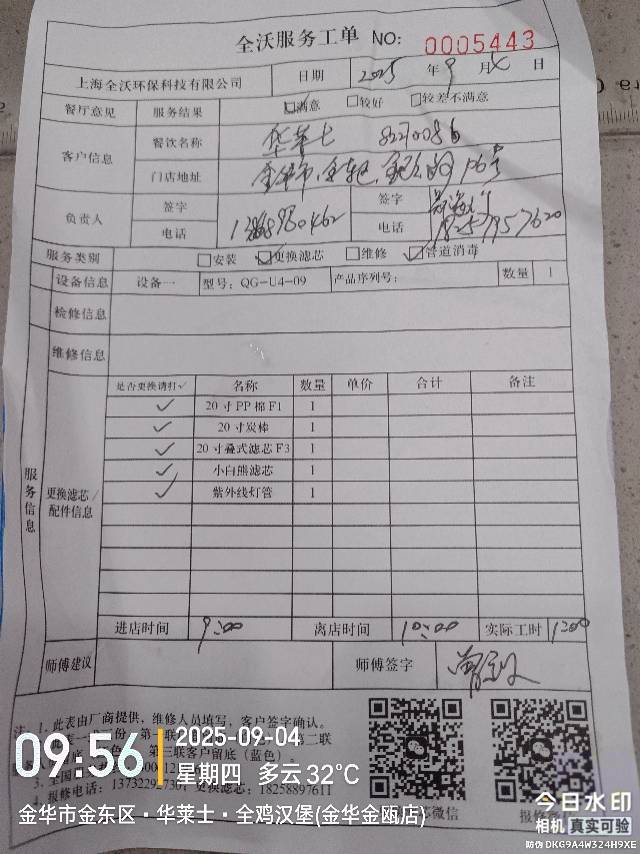 全沃服务工单 NO: 0005443
上海全沃环保科技有限公司 日期 2025 年 9 月 4 日
餐厅意见 服务结果 ☑满意 □较好 □较差不满意
客户信息 餐饮名称 华莱士 82270086
门店地址 金华市
负责人 签字 签字
电话 电话
服务类别 □安装 ☑更换滤芯 □维修 ☑管道消毒
设备信息 设备一 型号: QG-U4-09 产品序列号: 数量 1
检修信息
维修信息
服务信息
更换滤芯/配件信息
是否更换请打✓ 名称 数量 单价 合计 备注
✓ 20寸PP棉F1 1
✓ 20寸炭棒 1
✓ 20寸叠式滤芯F3 1
✓ 小白熊滤芯 1
✓ 紫外线灯管 1
进店时间 9:00 离店时间 10:00 实际工时
师傅建议 师傅签字
1、此表由厂商提供，维修人员填写，客户签字确认。
第三联客户留底（蓝色）。
更换滤芯: 18258897611
09:56
2025-09-04
星期四 多云 32℃
金华市金东区·华莱士·全鸡汉堡(金华金瓯店)
今日水印
相机 真实可验
防伪 DKG9A4W324H9XE